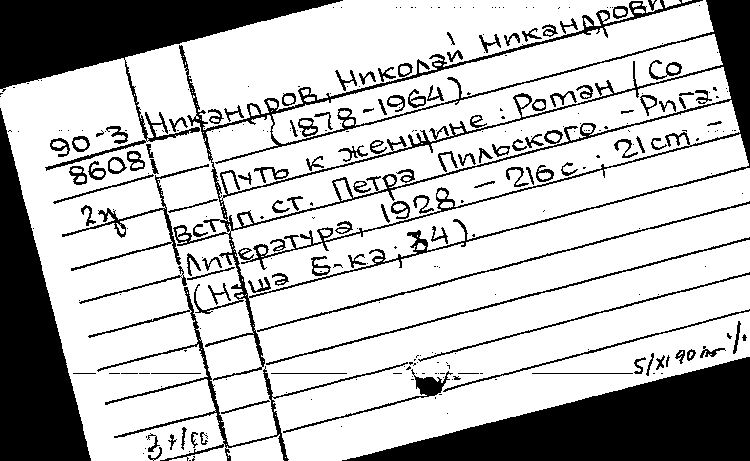 Никандров, Николай Никандрови
90-3
(1878-1964).
8608
Путь к женщине : Роман / Со
2 у
вступ. ст. Петра Пильского. – Рига:
Литература, 1928. – 216 с. ; 21 см. –
(Наша б-ка; 34).
5/XI 90